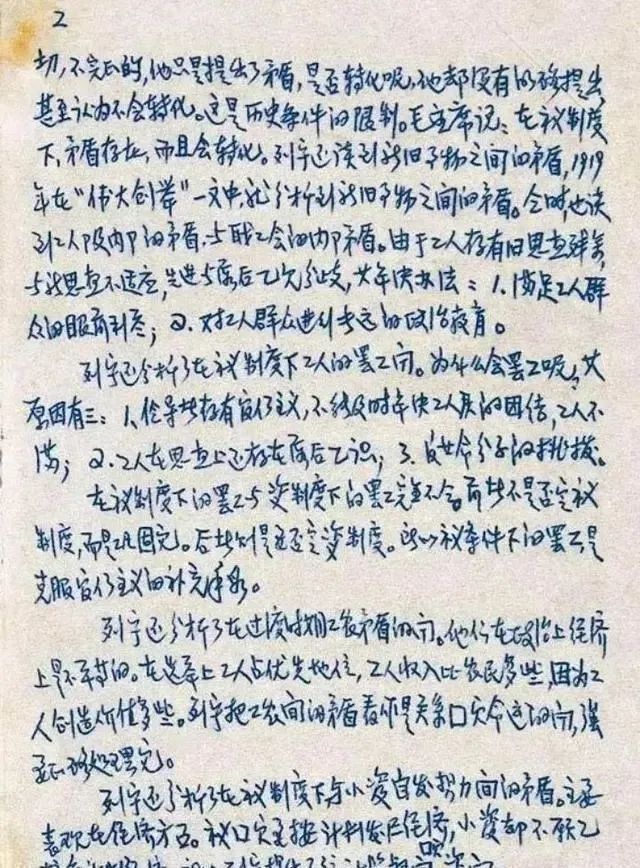 2
切,不完成的,他只是提出了矛盾,是否转化呢,他却没有明确提出,
甚至认为不会转化。这是历史条件的限制。毛主席说:在社制度
下,矛盾存在,而且会转化。列宁还谈到新旧事物之间的矛盾,1919
年在"伟大创举"一文中,就分析到新旧事物之间的矛盾。同时,也谈
到工人阶级内部的矛盾,与职工会的内部矛盾。由于工人存有旧思想残余,
与新思想不适应,先进与落后
解决办法:1.满足工人群
众的眼前利益;2.对工人群众进行长远的政治教育。
列宁还分析了在社制度下工人的罢工问。为什么会罢工呢,其
原因有三:1.领导上存有官仆主义,不能及时解决工人员的团结,工人不
满;2.工人在思想上还存在落后意识;3.反革命分子的挑拨。
在社制度下的罢工与资制度下的罢工完全不同。前者不是否定社
制度,而是巩固它。后者则是要否定资制度。所以社条件下的罢工是
克服官仆主义的补充手段。
列宁还分析了在过渡时期工农矛盾的问。他们在政治上经济
上是不平等的。在选举上工人占优先地位,工人收入比农民多些,因为工
人创造价值多些。列宁把工农间的矛盾看作是关系国家命运的问,强
正确处理它。
列宁还分析了在社制度下与小资自发势力间的矛盾。主要
喜欢在经济方面。社国家要按计划发展经济,小资却不愿